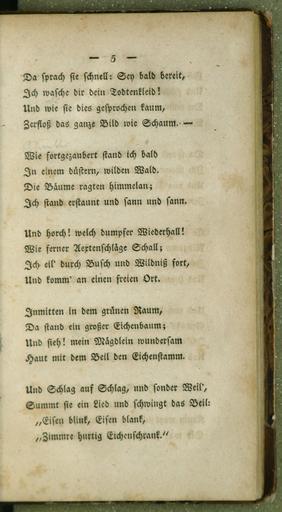 — 5 —
Da sprach sie schnell: Sey bald bereit,
Ich wasche dir dein Todtenkleid!
Und wie sie dies gesprochen kaum,
Zerfloß das ganze Bild wie Schaum. —
Wie fortgezaubert stand ich bald
In einem düstern, wilden Wald.
Die Bäume ragten himmelan;
Ich stand erstaunt und sann und sann.
Und horch! welch dumpfer Wiederhall!
Wie ferner Aextenschläge Schall;
Ich eil' durch Busch und Wildniß fort,
Und komm' an einen freien Ort.
Inmitten in dem grünen Raum,
Da stand ein großer Eichenbaum;
Und sieh! mein Mägdlein wundersam
Haut mit dem Beil den Eichenstamm.
Und Schlag auf Schlag, und sonder Weil',
Summt sie ein Lied und schwingt das Beil:
„Eisen blink, Eisen blank,
„Zimmre hurtig Eichenschrank.“